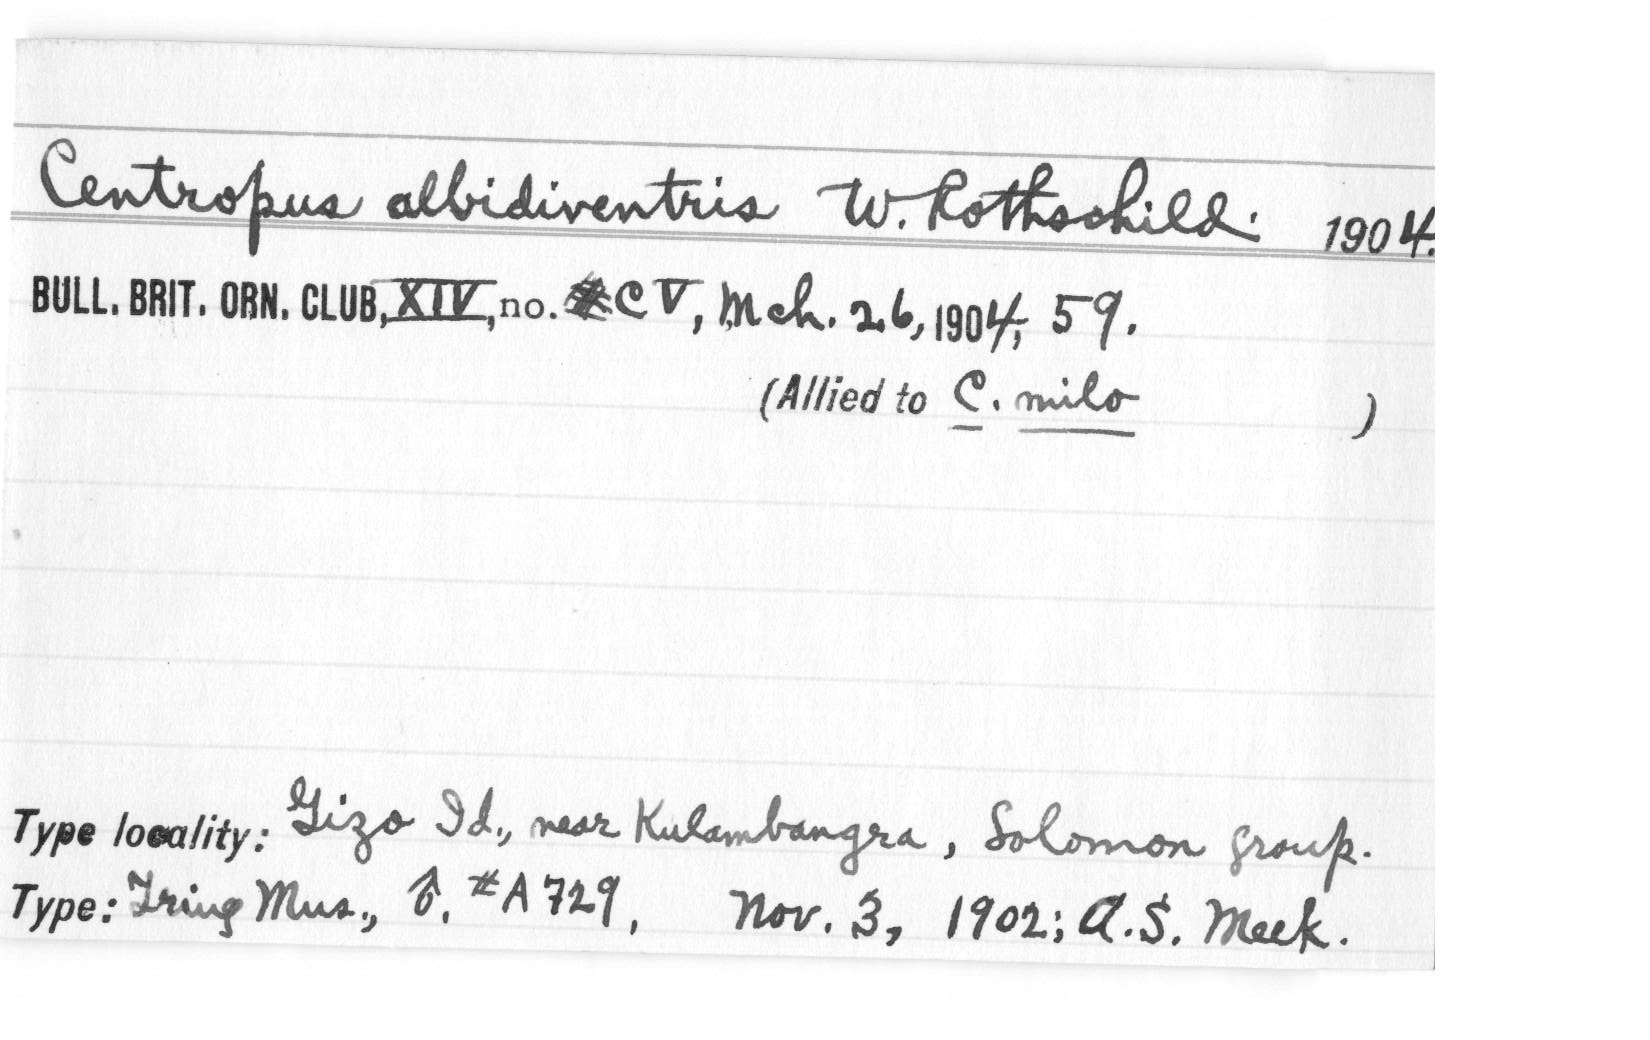 Centropus albidiventris W. Rothschild. 1904.
BULL. BRIT. ORN. CLUB, XIV, no. CV, Mch. 26, 1904, 59.
(Allied to C. milo )
Type locality: Gizo Id., near Kulambangra, Solomon group.
Type: Tring Mus., ♂. #A729, Nov. 3, 1902; A.S. Meek.